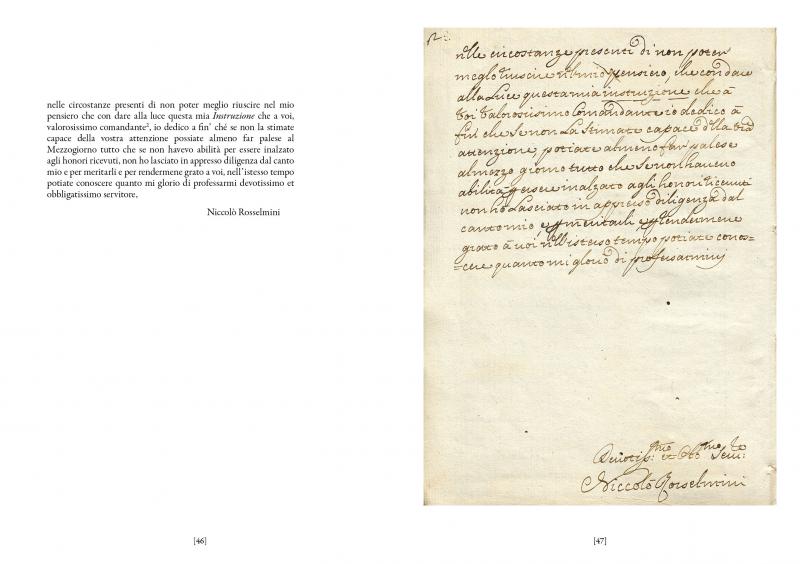 nelle circostanze presenti di non poter meglio riuscire nel mio
pensiero che con dare alla luce questa mia Instruzione che a voi,
valorosissimo comandante², io dedico a fin’ ché se non la stimate
capace della vostra attenzione possiate almeno far palese al
Mezzogiorno tutto che se non havevo abilità per essere inalzato
agli honori ricevuti, non ho lasciato in appresso diligenza dal canto
mio e per meritarli e per rendermene grato a voi, nell’istesso tempo
potiate conoscere quanto mi glorio di professarmi devotissimo et
obbligatissimo servitore.
Niccolò Rosselmini
[46]
nelle circostanze presenti di non poter
meglo riuscire nel mio pensiero, che con dare
alla Luce questa mia instruzione che à
Voi Valorosissimo Comandante io dedico à
fin che se non La stimate capace della vrã
attenzione potiate almeno far palese
al mezzo giorno tutto che se non havevo
abilità p essere inalzato agli honori ricevuti
non hò Lasciato in appresso diligenza dal
canto mio, e p meritarli e p rendermene
grato à voi nell istesso tempo potiate conos=
=cere quanto mi glorio di professarmi
Devotiss:mo et Obb:mo Serv:re
Niccolò Rosselmini
[47]